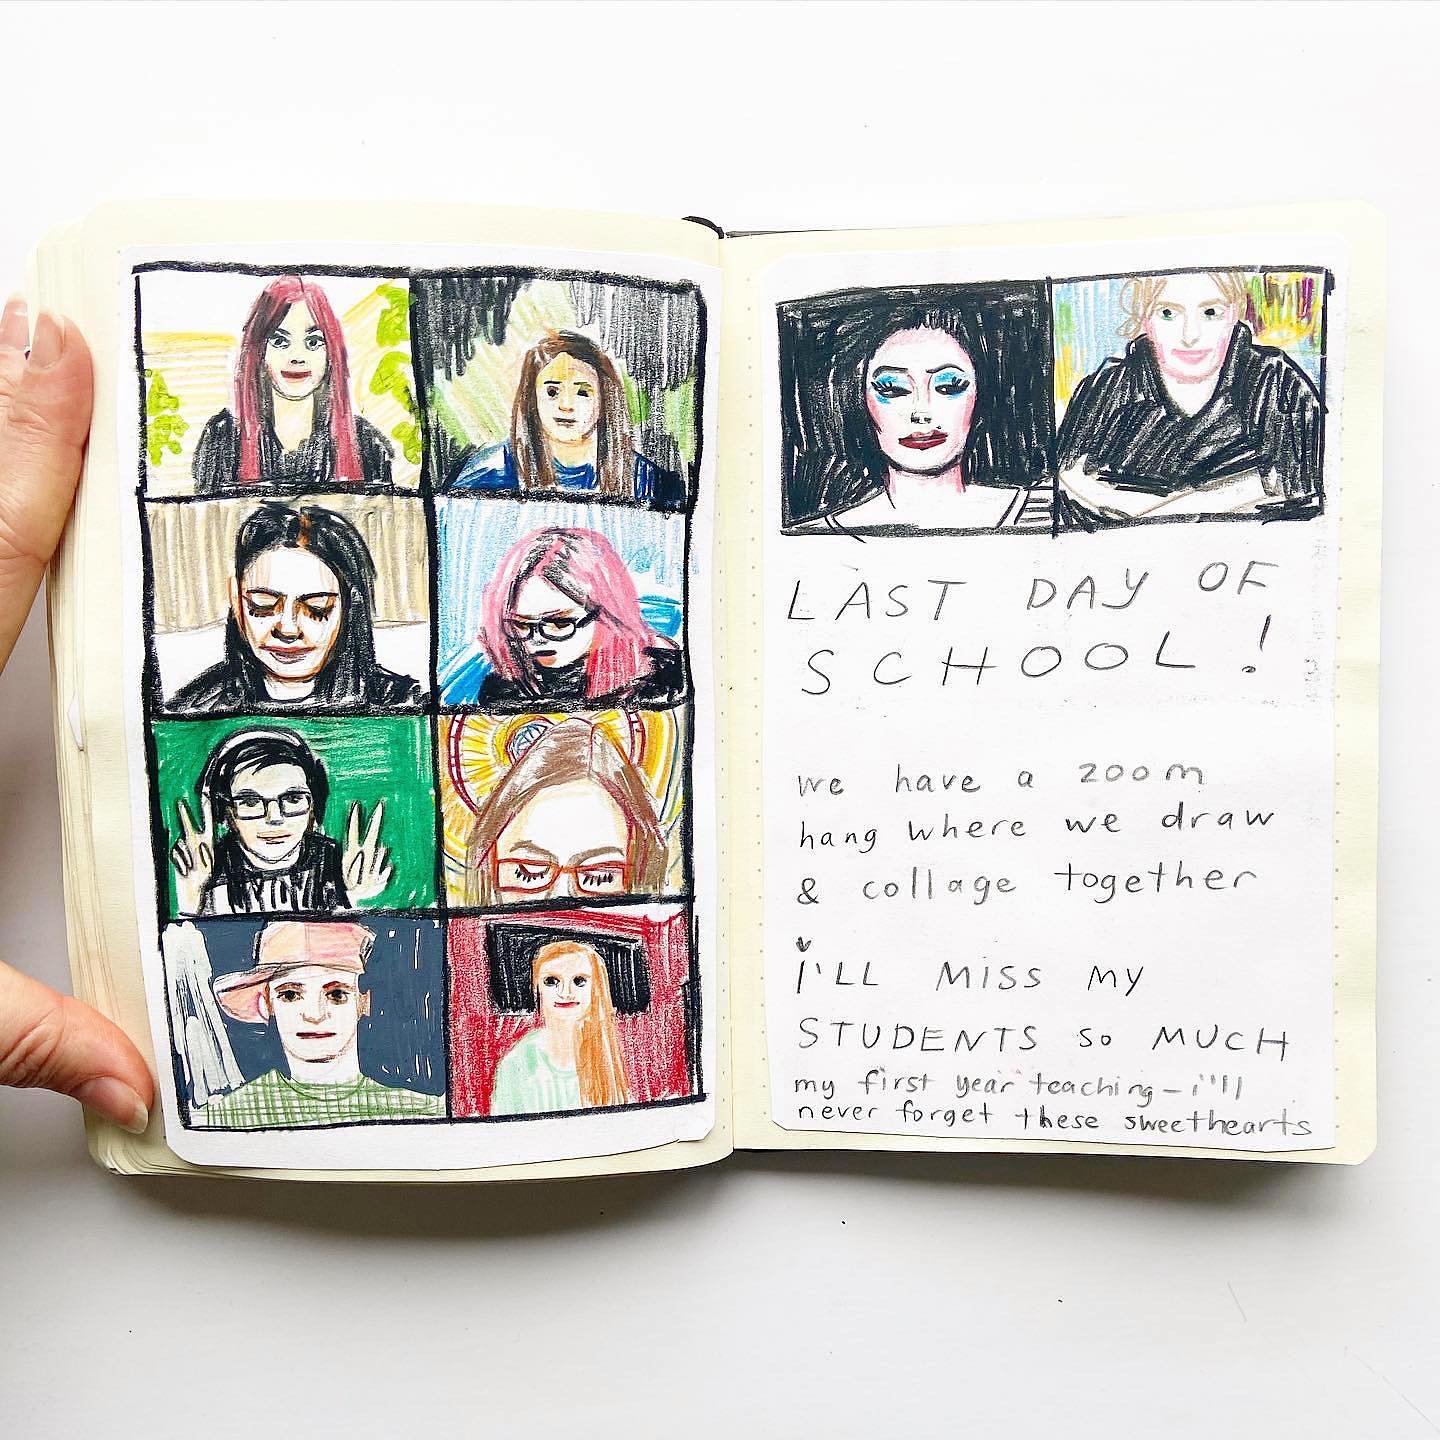 LAST DAY OF
SCHOOL!
we have a zoom
hang where we draw
& collage together
I'LL MISS MY
STUDENTS so MUCH
my first year teaching – i'll
never forget these sweethearts